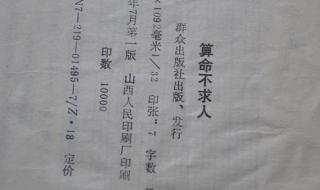 算命不求人
群众出版社出版、发行
×1092毫米1/32 印张 7 字数
年7月第一版 山西人民印刷厂印刷
印数 10000
N7-219-01495-7/Z·18 定价